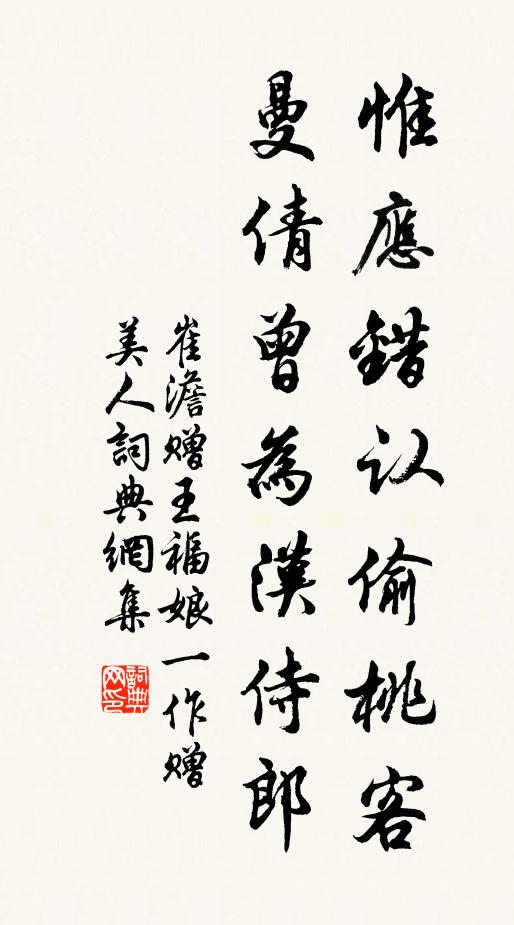 惟應錯认偷桃客
曼倩曾為漢侍郎
崔澹赠王福娘一作赠
美人詞典網集
詞典
网印